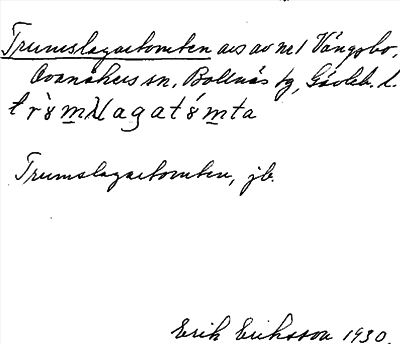 Trumslagaretomten avs av nr 1 Vängsbo,
Ovanåkers sn, Bollnäs tg, Gävleb. l.
Trumslagaretomten, jb.
Erik Eriksson 1930.